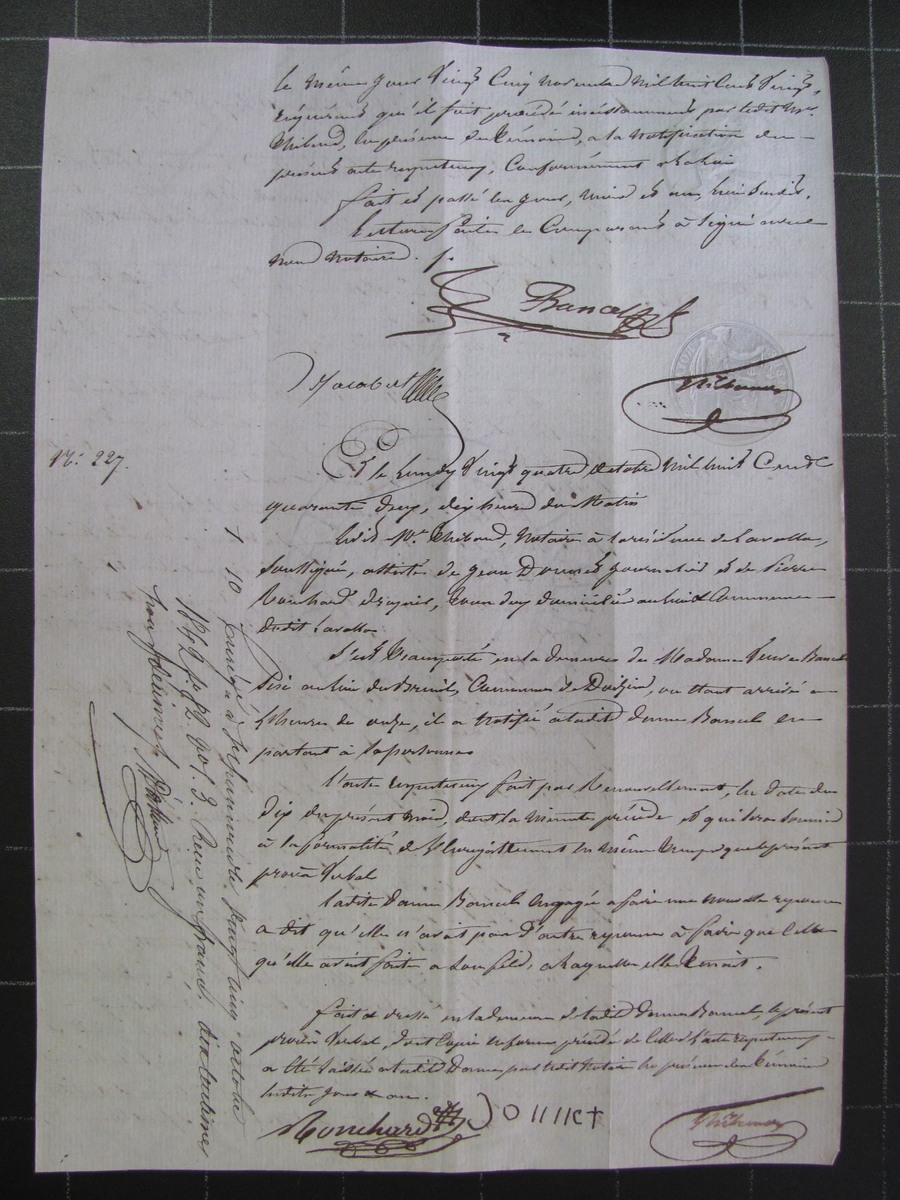 le même jour Vingt Cinq novembre Mil huit Cent Vingt,
requérant qu'il soit procédé incessamment par ledit Me
Thibaud, en présence de témoins, a la notification du
présent acte respectueux, Conformément a la loi
fait et passé les jour, mois et an, susdits.
Lecture faite le Comparant à Signé avec
nous notaire.
Bancel
Jacobert
Thibaud
N° 227.
Et le Lundy Vingt quatre octobre Mil huit Cent
quarante deux, dix heures du Matin
Ledit Me Thibaud, Notaire à la résidence de Lavalla,
Soussigné, assisté de Jean journalier et de Pierre
Ronchard tous deux domiciliés au Commune
dudit Lavalla
S'est transporté en la demeure de Madame Veuve Bancel
Sise au lieu du Breuil, Commune de ou étant arrivé a
heures de onze, il a notifié a ladite dame Bancel en
parlant à sa personne
l'acte respectueux fait par Renouvellement, en date du
dix du présent mois, dont la Minute précède et qui sera soumis
à la formalité de l'Enregistrement en même temps que le présent
procès Verbal
ladite dame Bancel engagée a faire une nouvelle réponse
a dit qu'elle n'avait pas d'autre réponse à faire que Celle
qu'elle avait faite a son fils, a laquelle elle tenait.
fait & dressé en la demeure de ladite dame Bancel, le présent
procès Verbal, dont Copie en forme précédé de celle de l'acte respectueux
a été laissée a ladite Dame par ledit Notaire en présence des témoins
lesdits Jour & an.
Ronchard
Thibaud
Enregé à Vingt cinq octobre
1842 fo 92 Vo C. 3. Reçu un franc, dix centimes
pour décime